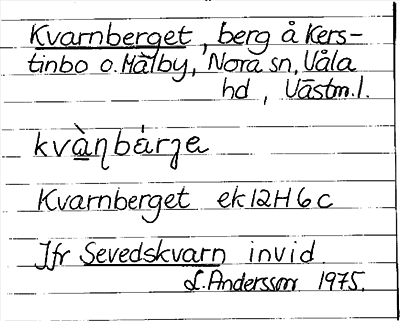 Kvarnberget, berg å Kers-
tinbo o. Mälby, Nora sn, Våla
hd, Västm.l.
kvànbárʒa
Kvarnberget ek 12H 6c
Jfr Sevedskvarn invid.
L. Andersson 1975.